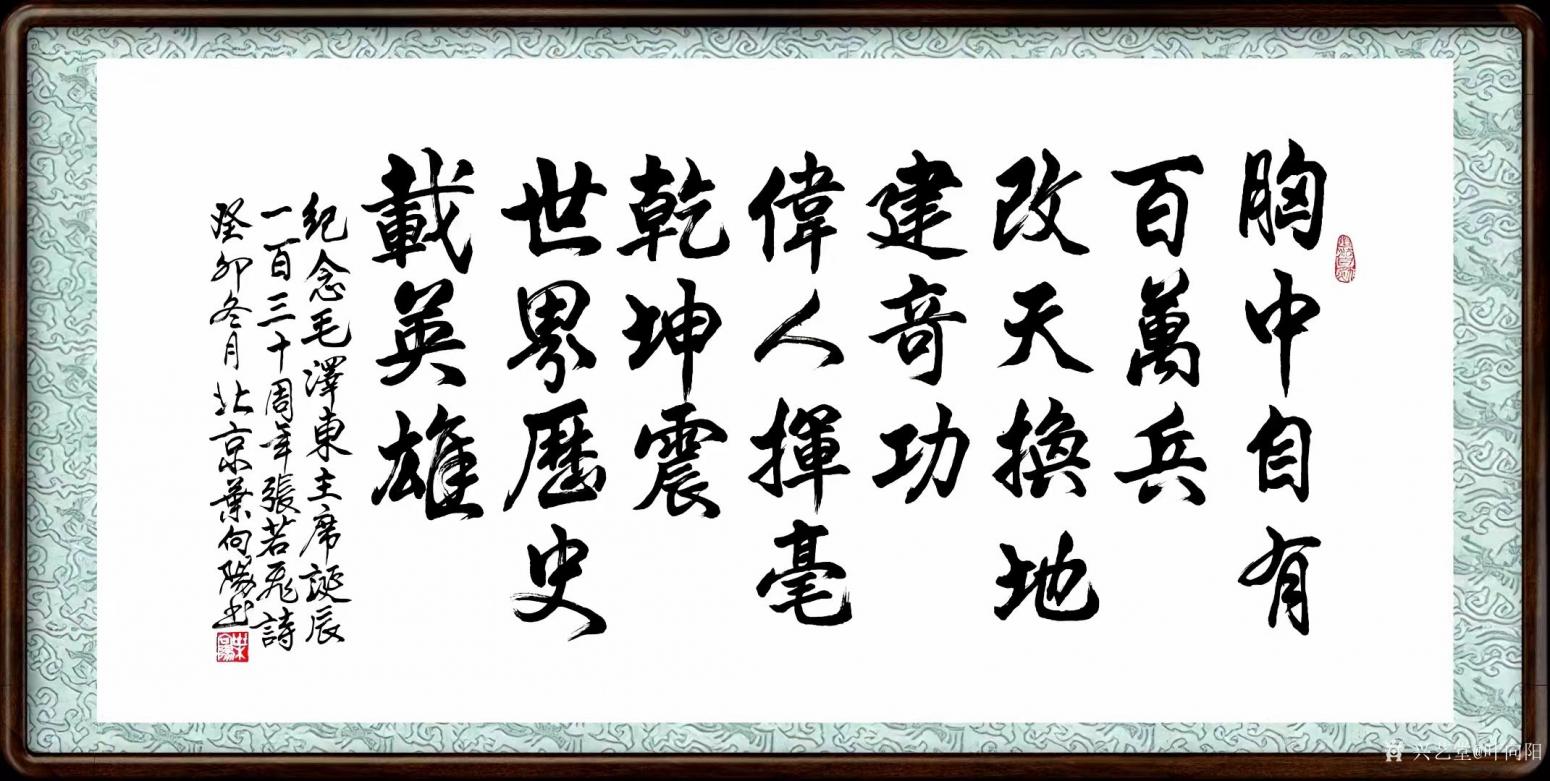 胸中自有
百萬兵
改天換地
建奇功
偉人揮毫
乾坤震
世界歷史
載英雄
紀念毛澤東主席誕辰
一百三十周年張若飛詩
癸卯冬月北京葉向陽书
葉向陽
兴艺堂@叶向阳